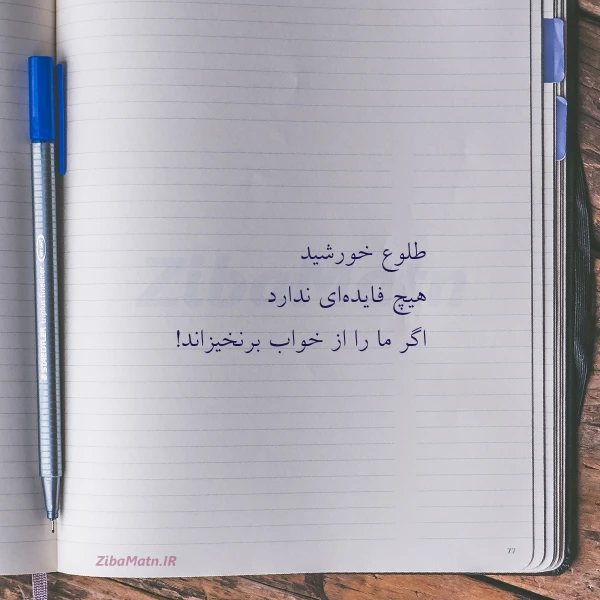 طلوع خورشید
هیچ فایده‌ای ندارد
اگر ما را از خواب برنخیزاند!
ZibaMatn
ZibaMatn.IR